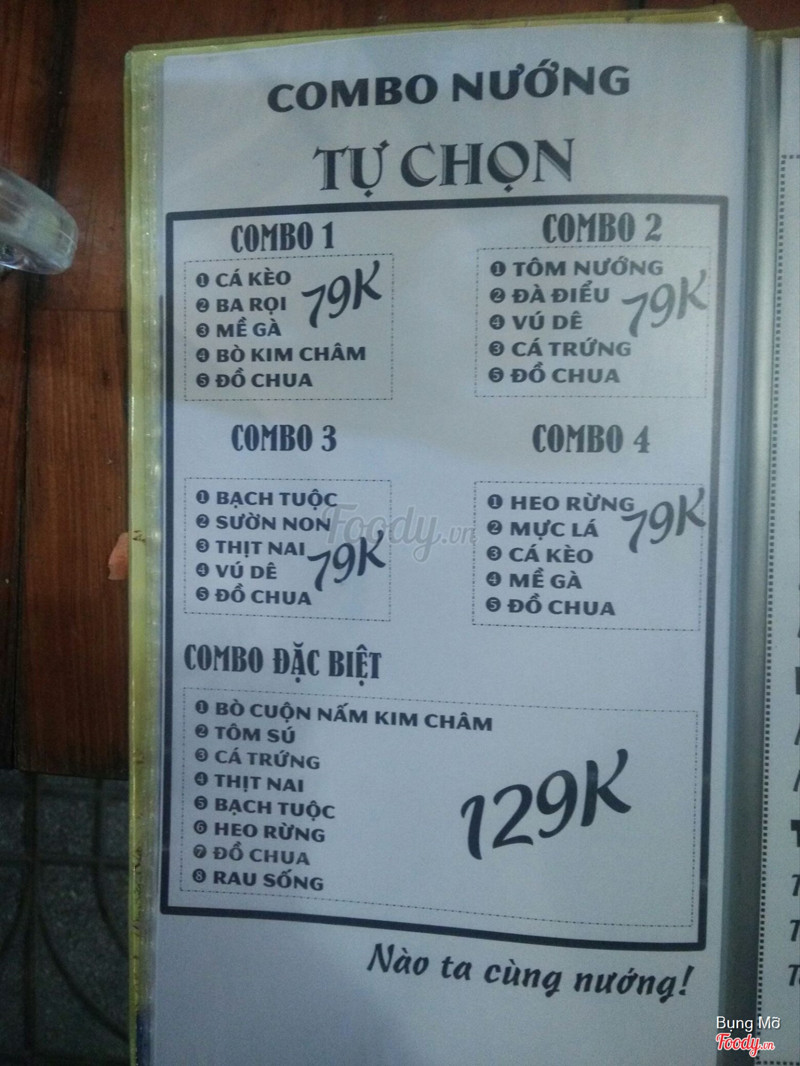 COMBO NƯỚNG
TỰ CHỌN
COMBO 1
❶ CÁ KÈO
❷ BA RỌI
❸ MỀ GÀ
❹ BÒ KIM CHÂM
❺ ĐỒ CHUA
79K
COMBO 2
❶ TÔM NƯỚNG
❷ ĐÀ ĐIỂU
❹ VÚ DÊ
❸ CÁ TRỨNG
❺ ĐỒ CHUA
79K
COMBO 3
❶ BẠCH TUỘC
❷ SƯỜN NON
❸ THỊT NAI
❹ VÚ DÊ
❺ ĐỒ CHUA
79K
COMBO 4
❶ HEO RỪNG
❷ MỰC LÁ
❸ CÁ KÈO
❹ MỀ GÀ
❺ ĐỒ CHUA
79K
Foody.vn
COMBO ĐẶC BIỆT
❶ BÒ CUỘN NẤM KIM CHÂM
❷ TÔM SÚ
❸ CÁ TRỨNG
❹ THỊT NAI
❺ BẠCH TUỘC
❻ HEO RỪNG
❼ ĐỒ CHUA
❽ RAU SỐNG
129K
Nào ta cùng nướng!
Bụng Mỡ
Foody.vn